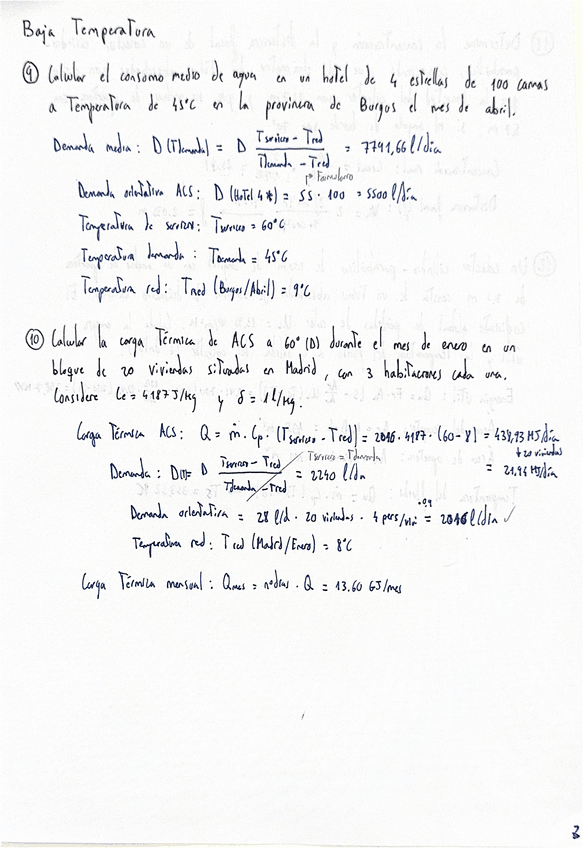 Baja Temperatura
⑨ Calcular el consumo medio de agua en un hotel de 4 estrellas de 100 camas
a Temperatura de 45°C en la provincia de Burgos el mes de abril.
Demanda media: D(Tdemanda) = D (Tservicio - Tred)/(Tdemanda - Tred) = 7791,66 l/día
Formulario
Demanda orientativa ACS: D(Hotel 4*) = 55 · 100 = 5500 l/día
Temperatura de servicio: Tservicio = 60°C
Temperatura demanda: Tdemanda = 45°C
Temperatura red: Tred (Burgos/Abril) = 9°C
⑩ Calcular la carga Térmica de ACS a 60° (D) durante el mes de enero en un
bloque de 20 viviendas situadas en Madrid, con 3 habitaciones cada una.
Considere Ce = 4187 J/Kg y δ = 1 l/Kg.
Carga Térmica ACS: Q = ṁ · Cp · (Tservicio - Tred) = 2016 · 4187 · (60-8) = 438,93 MJ/día
Tservicio = Tdemanda
÷ 20 viviendas
Demanda: D(T) = D (Tservicio - Tred)/(Tdemanda - Tred) = 2240 l/día
= 21,94 MJ/día
Demanda orientativa = 28 l/d · 20 viviendas · 4 pers/viv · 0,9 = 2016 l/día ✓
Temperatura red: Tred (Madrid/Enero) = 8°C
Carga Térmica mensual: Qmes = nºdías · Q = 13.60 GJ/mes
3